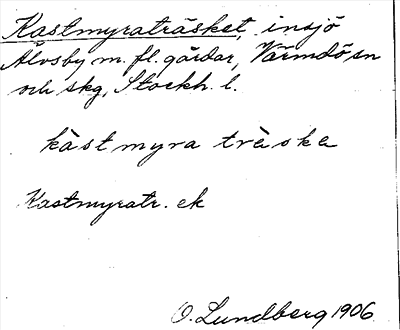 Kastmyraträsket, insjö
Älvsby m. fl. gårdar, Värmdö sn
och skg, Stockh. l.
kàstmyra trèske
Kastmyratr. ek
O. Lundberg 1906.